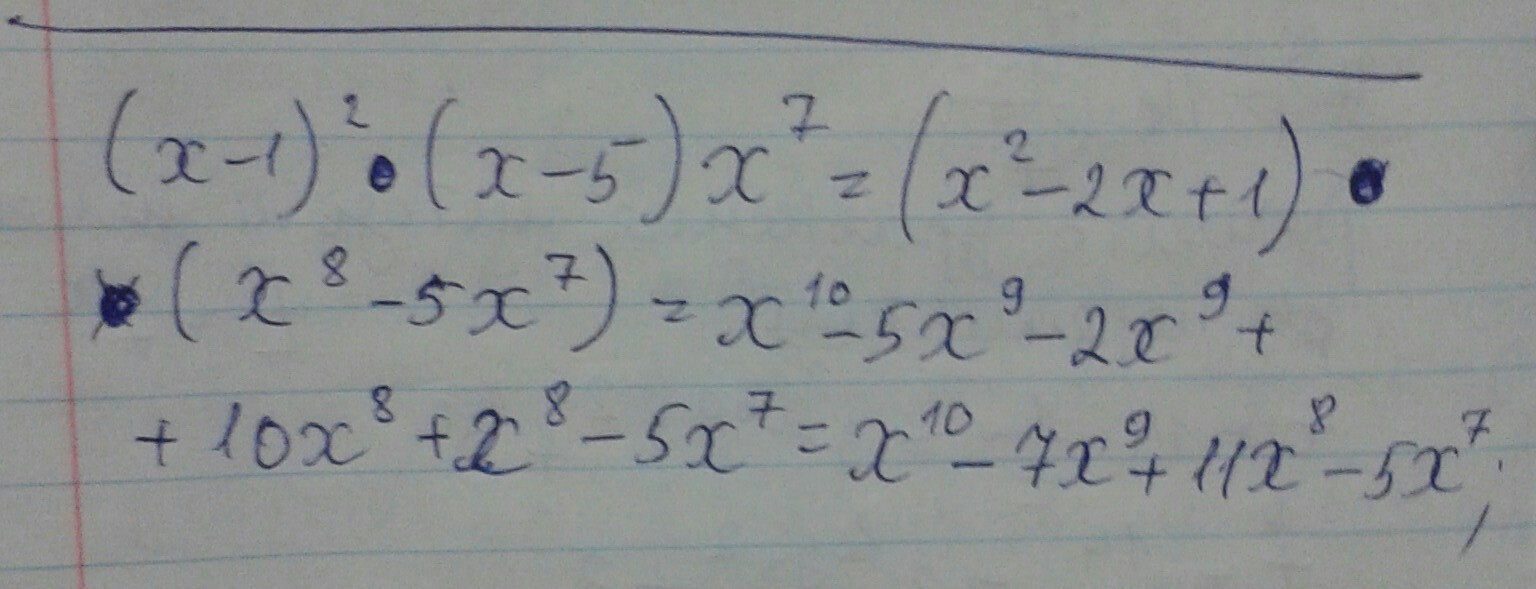 (x-1)² • (x-5)x⁷ = (x²-2x+1) •
• (x⁸-5x⁷) = x¹⁰-5x⁹-2x⁹+
+10x⁸+x⁸-5x⁷=x¹⁰-7x⁹+11x⁸-5x⁷;